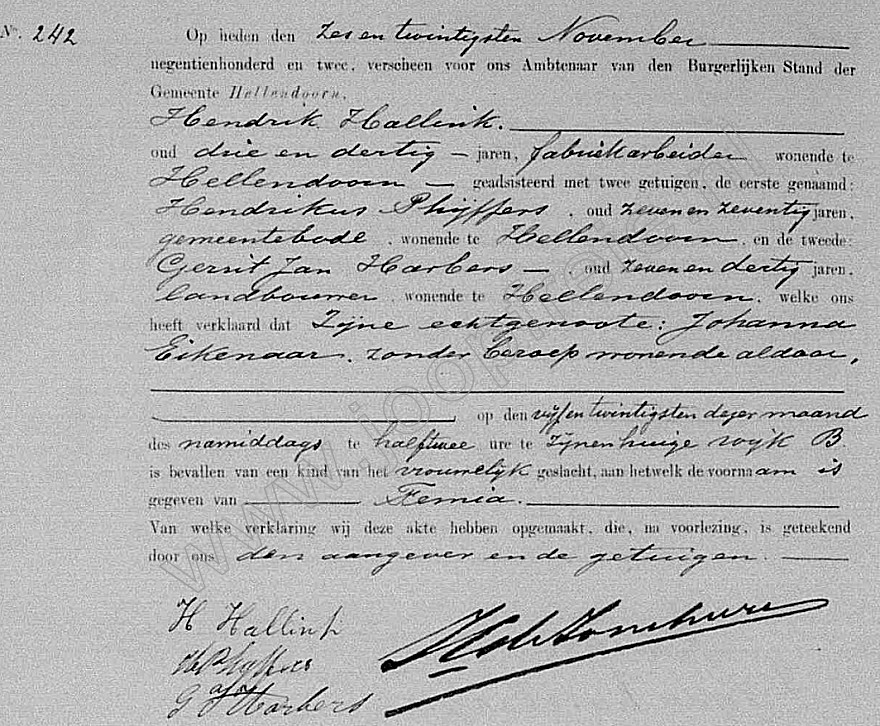 No. 242
Op heden den zes en twintigsten November
negentienhonderd en twee, verscheen voor ons Ambtenaar van den Burgerlijken Stand der
Gemeente Hellendoorn,
Hendrik Hallink.
oud drie en dertig jaren, fabriekarbeider wonende te
Hellendoorn geadsisteerd met twee getuigen, de eerste genaamd:
Hendrikus Phijffers, oud zeven en zeventig jaren,
gemeentebode, wonende te Hellendoorn, en de tweede:
Gerrit Jan Harbers, oud zeven en dertig jaren,
landbouwer, wonende te Hellendoorn, welke ons
heeft verklaard dat Zijne echtgenoote: Johanna
Eikenaar, zonder beroep wonende aldaar,
op den vijf en twintigsten dezer maand
des namiddags te half twee ure te zijnen huize wijk B.
is bevallen van een kind van het vrouwelijk geslacht, aan hetwelk de voornaam is
gegeven van Femia.
Van welke verklaring wij deze akte hebben opgemaakt, die, na voorlezing, is geteekend
door ons den aangever en de getuigen.
H Hallink
G J Harbers